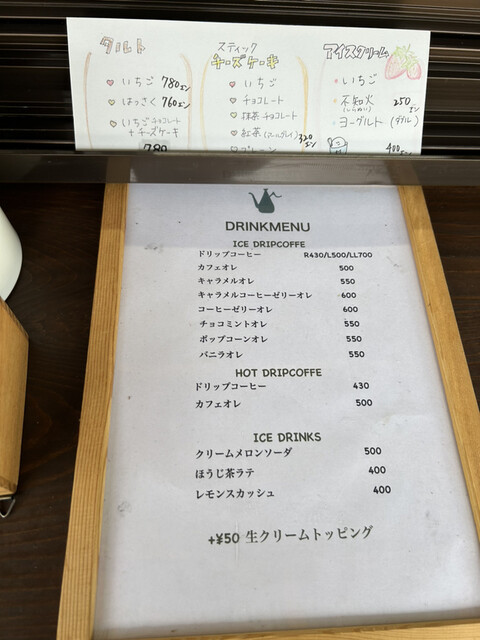 タルト
♡ いちご 780エン
♡ はっさく 760エン
♡ いちごチョコレート
+チーズケーキ
780
スティック
チーズケーキ
♡ いちご
♡ チョコレート
♡ 抹茶チョコレート
♡ 紅茶(アールグレイ) 320エン
♡ プレーン
アイスクリーム
いちご
不知火 250エン
(しらぬい)
ヨーグルト (ダブル)
400エン
DRINKMENU
ICE DRIPCOFFE
ドリップコーヒー R430/L500/LL700
カフェオレ 500
キャラメルオレ 550
キャラメルコーヒーゼリーオレ 600
コーヒーゼリーオレ 600
チョコミントオレ 550
ポップコーンオレ 550
バニラオレ 550
HOT DRIPCOFFE
ドリップコーヒー 430
カフェオレ 500
ICE DRINKS
クリームメロンソーダ 500
ほうじ茶ラテ 400
レモンスカッシュ 400
+¥50 生クリームトッピング